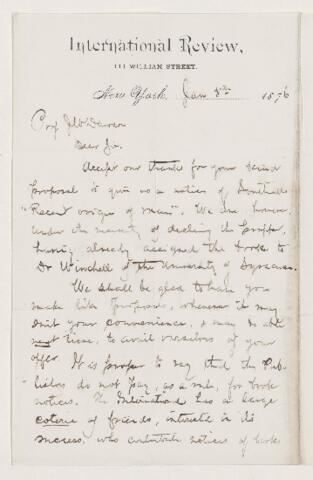 International Review,
111 WILLIAM STREET.
New York, Jan 8th 1876
Prof J W Dawson
Dear Sir,
Accept our thanks for your kind
proposal to give us a notice of Southall's
"Recent origin of man". We are however
under the necessity of declining the proffer,
having already assigned the book to
Dr Winchell of the University of Syracuse.
We shall be glad to have you
make like proposals, whenever it may
suit your convenience, & may be able
next time, to avail ourselves of your
offer. It is proper to say that the Pub-
lishers do not pay, as a rule, for book
notices. The International has a large
coterie of friends, interested in its
success, who contribute notices of books